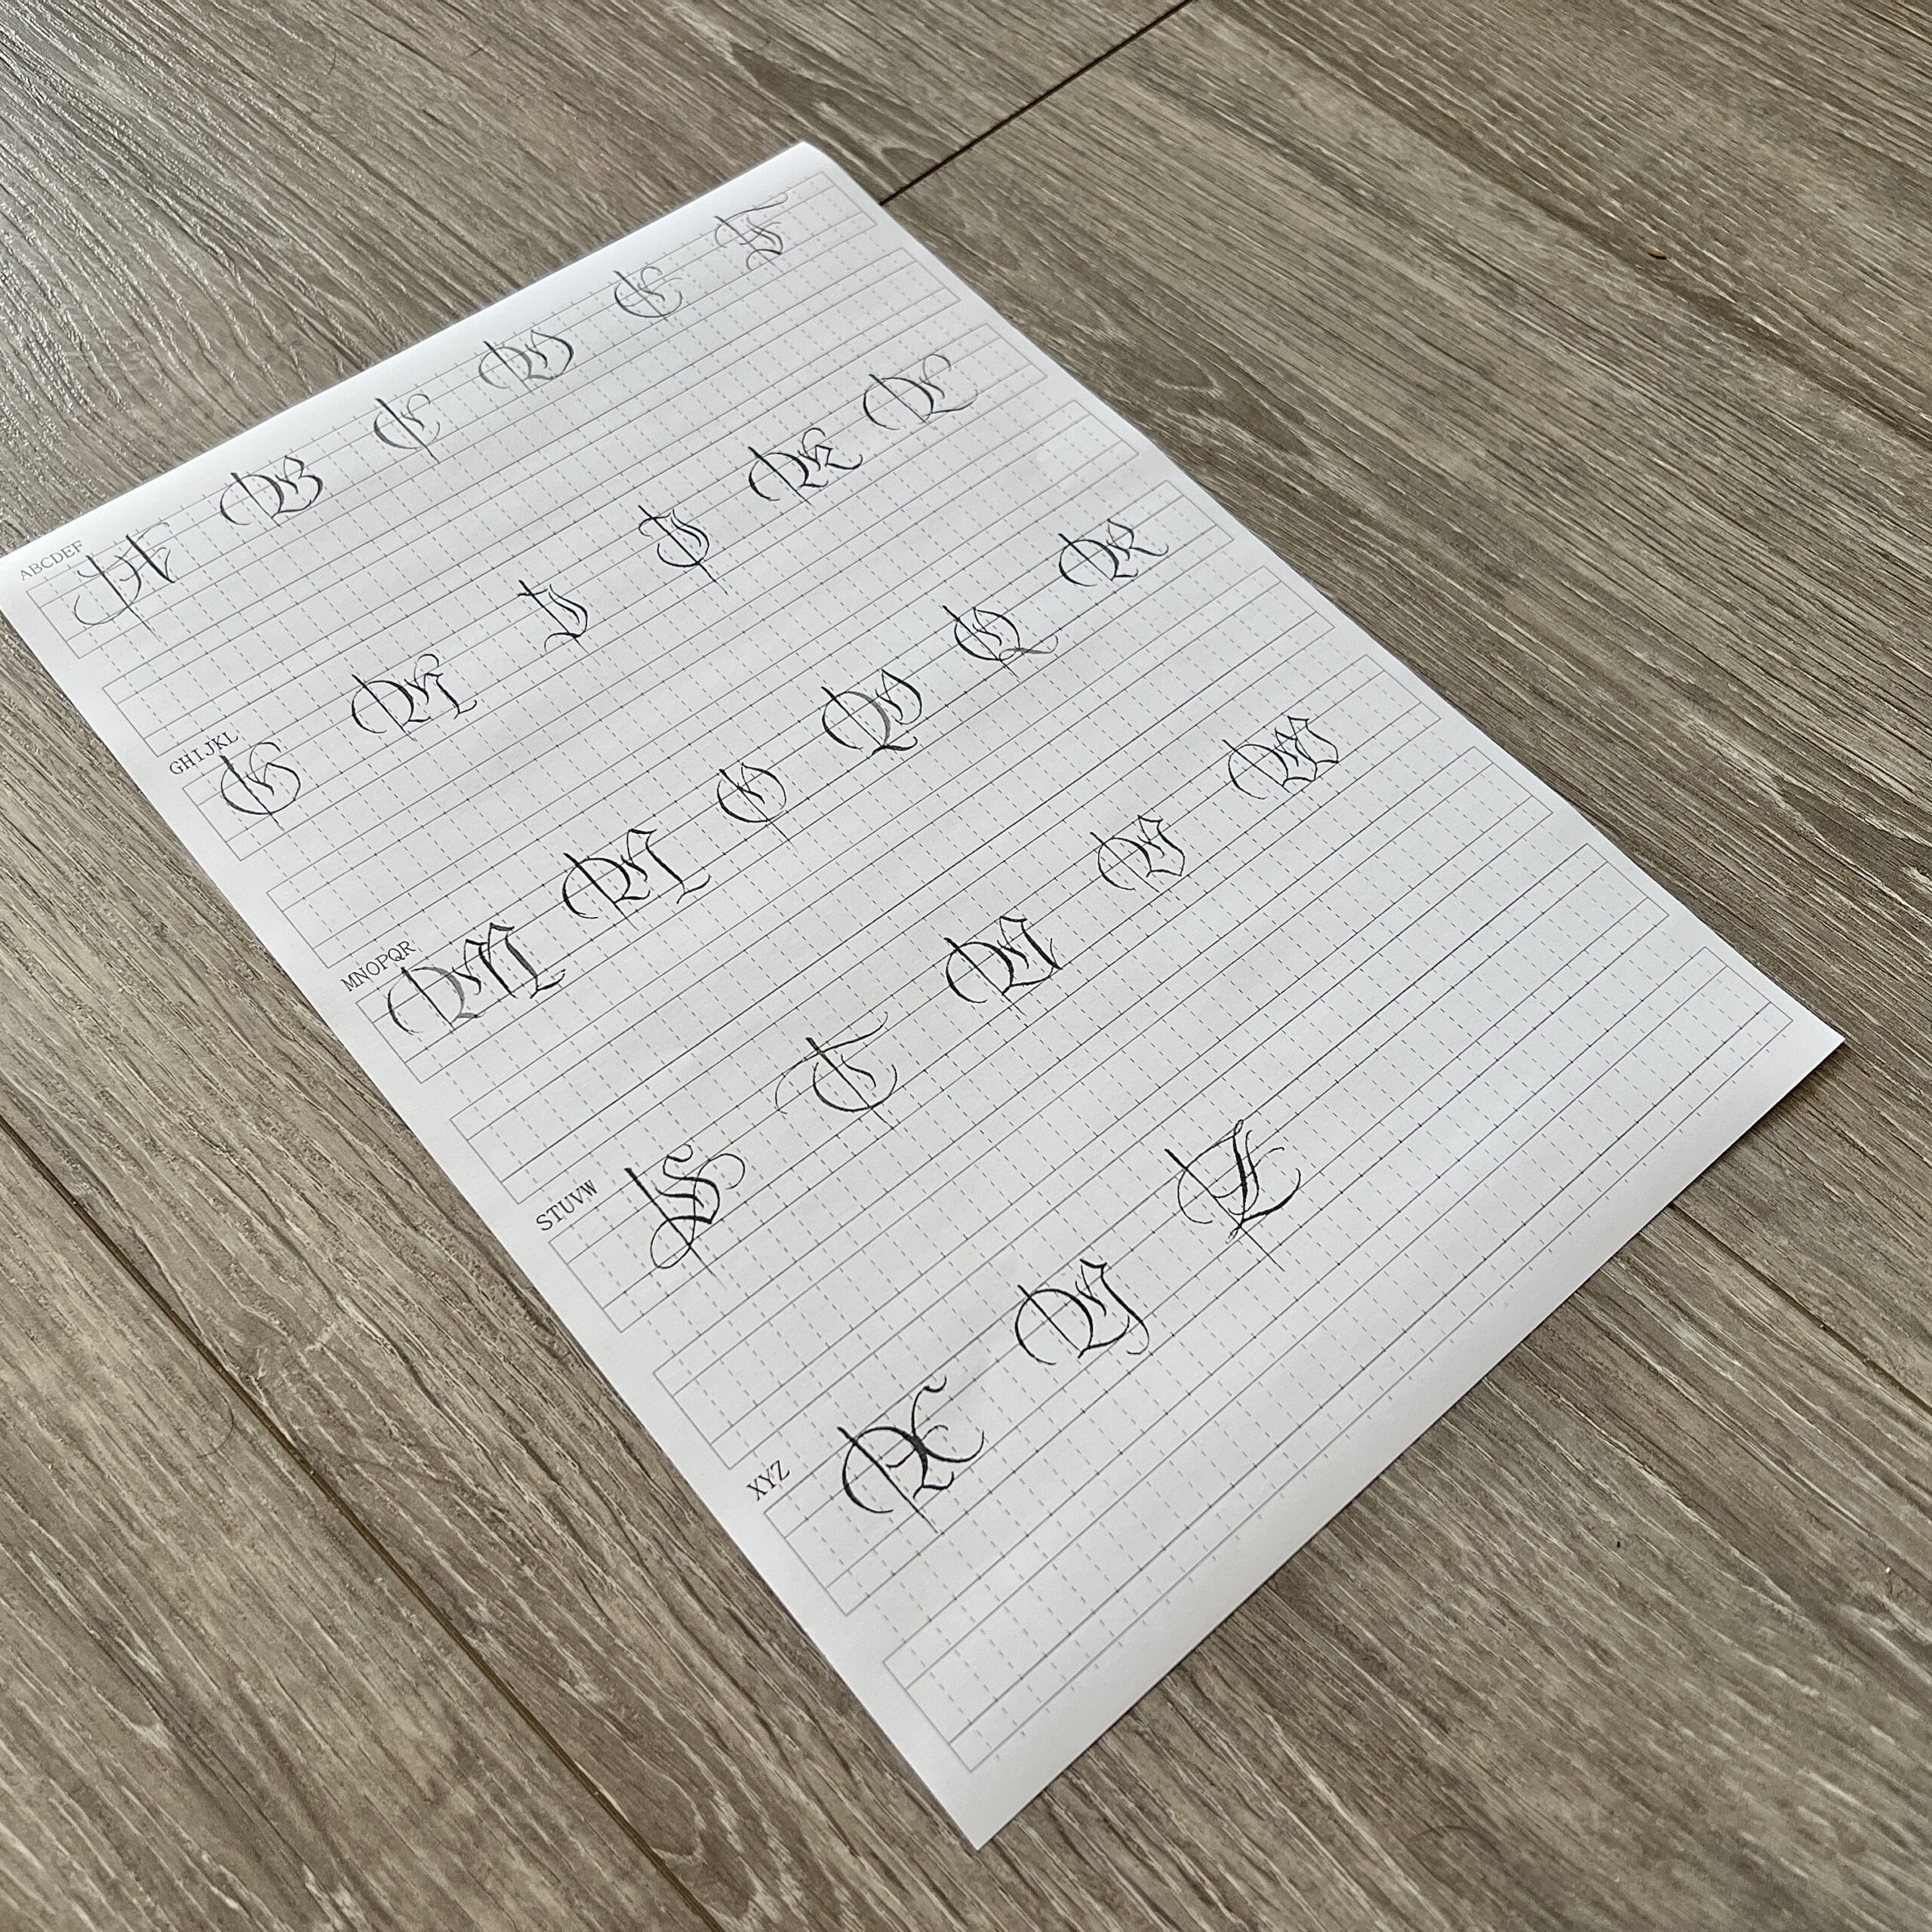 ABCDEF
A B C D E F
GHIJKL
G H I J K L
MNOPQR
M N O P Q R
STUVW
S T U V W
XYZ
X Y Z